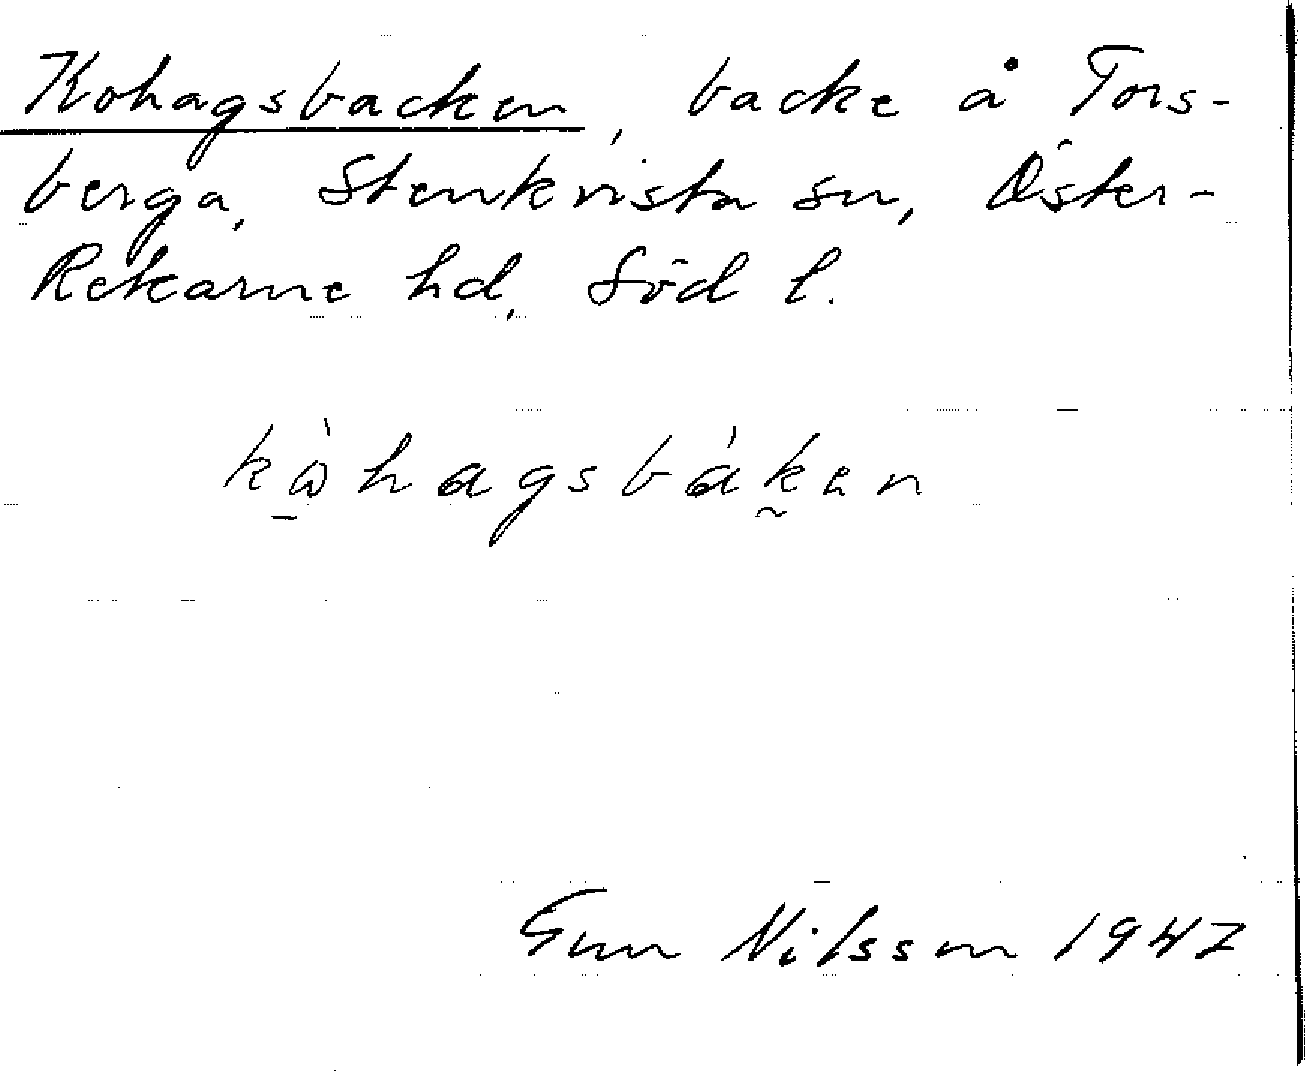 Kohagsbacken, backe å Tors-
berga, Stenkvista sn, Öster-
Rekarne hd, Söd l.
kὼ̱hagsbák̰ən
Gun Nilsson 1947